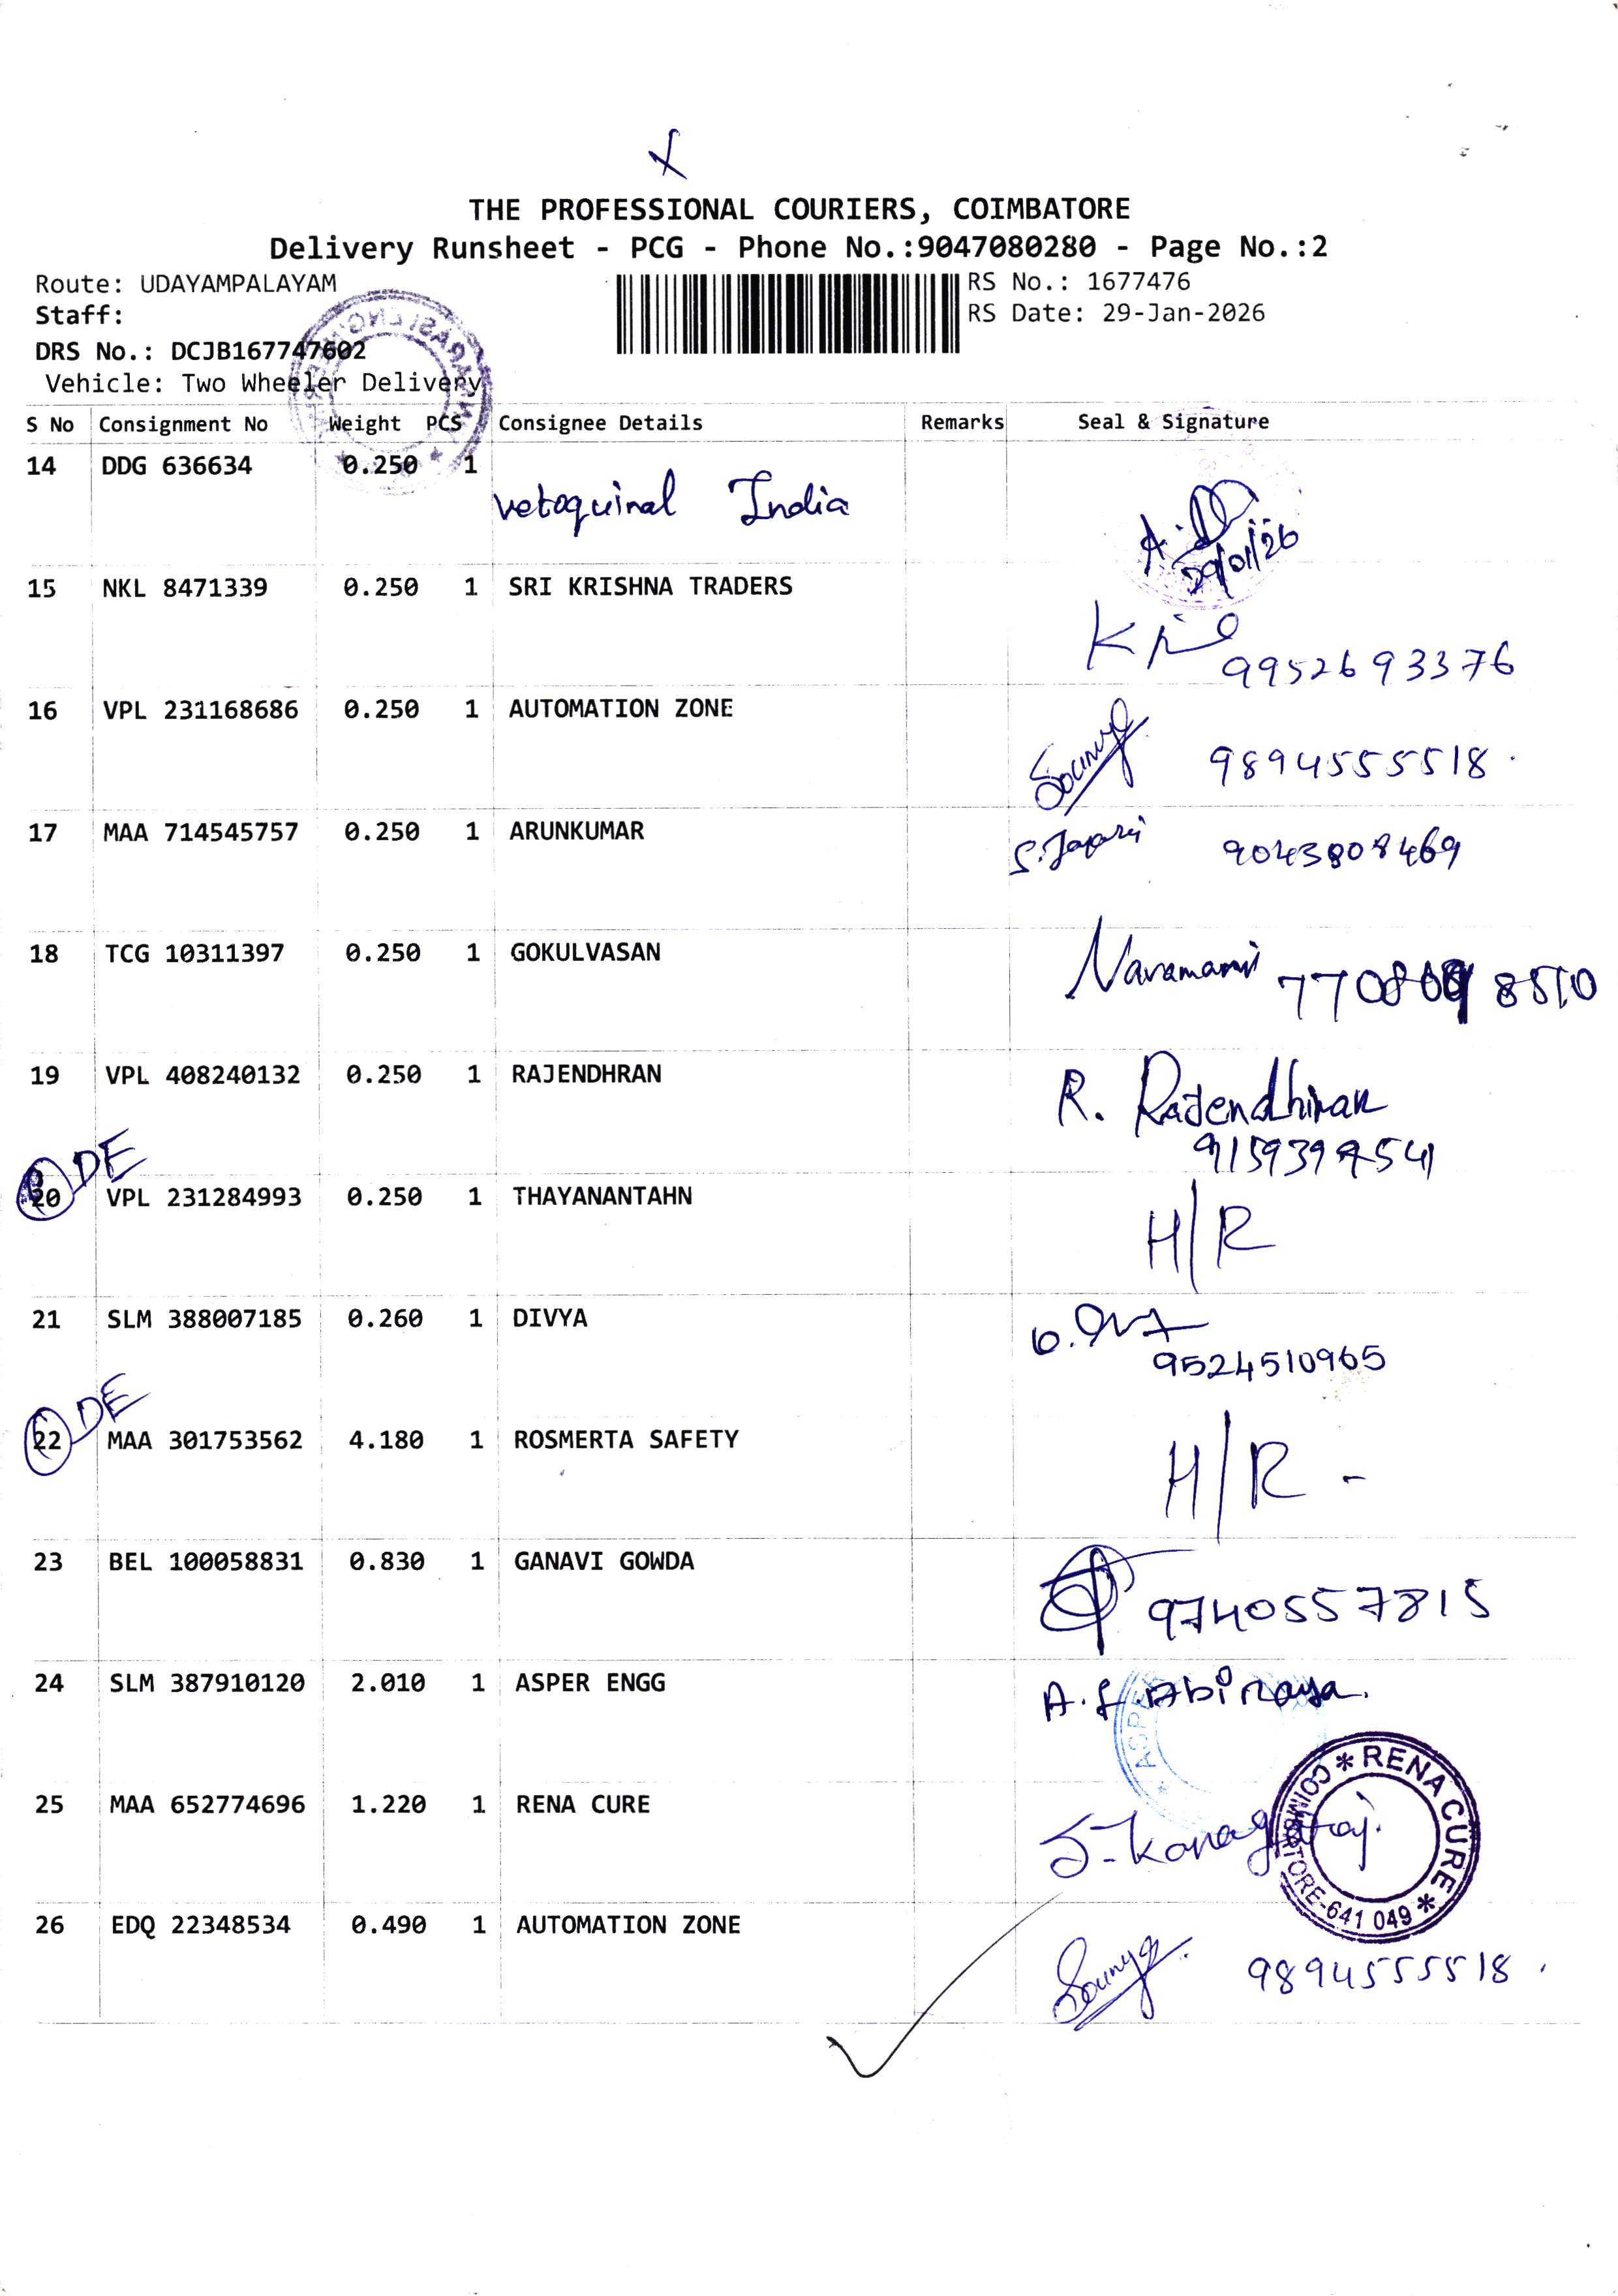 THE PROFESSIONAL COURIERS, COIMBATORE
Delivery Runsheet - PCG - Phone No.:9047080280 - Page No.:2
Route: UDAYAMPALAYAM
RS No.: 1677476
Staff:
RS Date: 29-Jan-2026
DRS No.: DCJB167747602
Vehicle: Two Wheeler Delivery
S No Consignment No Weight PCS Consignee Details Remarks Seal & Signature
14 DDG 636634 0.250 1
vetoquinal India
29/01/26
15 NKL 8471339 0.250 1 SRI KRISHNA TRADERS
9952693376
16 VPL 231168686 0.250 1 AUTOMATION ZONE
9894555518.
17 MAA 714545757 0.250 1 ARUNKUMAR
9043808469
18 TCG 10311397 0.250 1 GOKULVASAN
Navamani
19 VPL 408240132 0.250 1 RAJENDHRAN
R. Rajendhiran
DE
20 VPL 231284993 0.250 1 THAYANANTAHN
H/R
21 SLM 388007185 0.260 1 DIVYA
9524510965
DE
22 MAA 301753562 4.180 1 ROSMERTA SAFETY
H/R -
23 BEL 100058831 0.830 1 GANAVI GOWDA
9740557815
24 SLM 387910120 2.010 1 ASPER ENGG
Abinaya.
ASPER
* RENA CURE *
COIMBATORE-641 049
25 MAA 652774696 1.220 1 RENA CURE
S-Kanagaraj.
26 EDQ 22348534 0.490 1 AUTOMATION ZONE
9894555518.